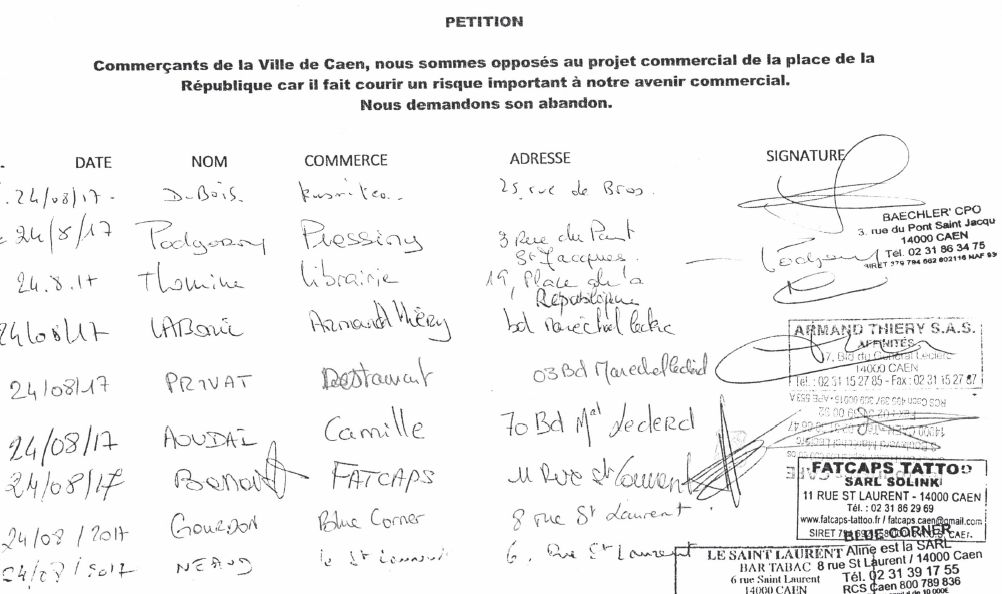 PETITION
Commerçants de la Ville de Caen, nous sommes opposés au projet commercial de la place de la
République car il fait courir un risque important à notre avenir commercial.
Nous demandons son abandon.
DATE NOM COMMERCE ADRESSE SIGNATURE
24/08/17 DuBois 25 rue de Bras
24/8/17 Podgorny Pressing 3 Rue du Pont
St Jacques
BAECHLER' CPO
3. rue du Pont Saint Jacqu
14000 CAEN
Tél. 02 31 86 34 75
24.8.17 Thomine Librairie 19, Place de la
République
24/08/17 Armand Thiéry bd Maréchal leclerc
ARMAND THIERY S.A.S.
AFFINITÉS
7, Bld du Général Leclerc
14000 CAEN
Tél. : 02 31 15 27 85 - Fax : 02 31 15 27 87
24/08/17 PRIVAT Restaurant 03 Bd Marechal leclerd
24/08/17 AOUDAI Camille 70 Bd Mal leclerd
24/08/17 Benoit FATCAPS 11 Rue St Laurent
FATCAPS TATTOO
SARL SOLINKI
11 RUE ST LAURENT - 14000 CAEN
Tél. : 02 31 86 29 69
www.fatcaps-tattoo.fr / fatcaps.caen@gmail.com
24/08/2017 GOURDON Blue Corner 8 rue St Laurent
BLUE CORNER
Aline est la SARL
8 rue St Laurent / 14000 Caen
Tél. 02 31 39 17 55
RCS Caen 800 789 836
24/08/2017 le St 6. Rue St Laurent
LE SAINT LAURENT
BAR TABAC
6 rue Saint Laurent
14000 CAEN